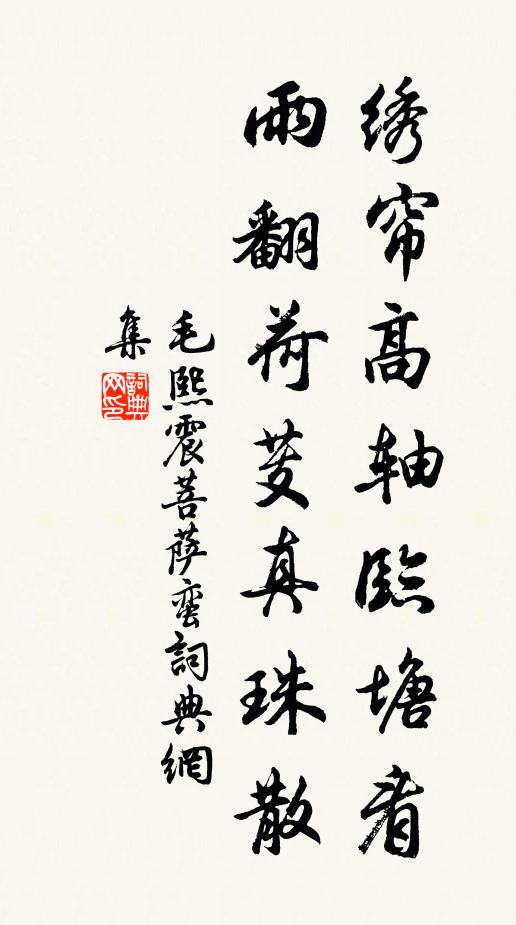 绣帘高轴临塘看
雨翻荷芰真珠散
毛熙震菩萨蛮詞典網
集
詞典网印